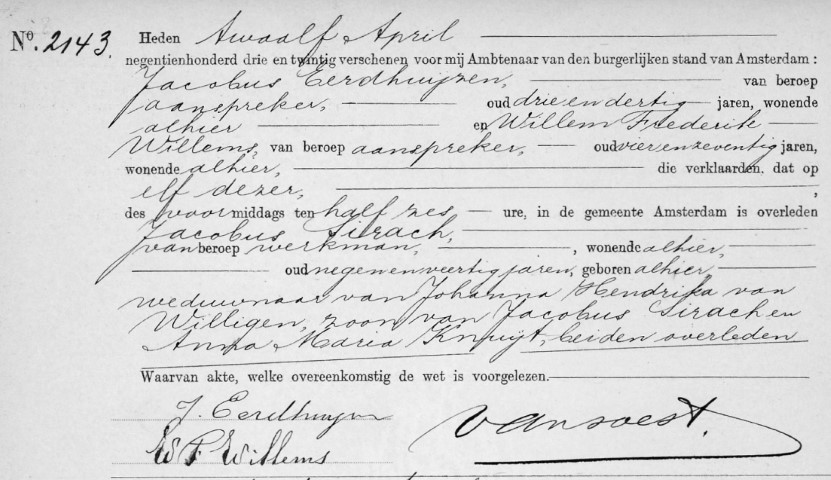 No. 2143. Heden Twaalf April
negentienhonderd drie en twintig verschenen voor mij Ambtenaar van den burgerlijken stand van Amsterdam :
Jacobus Eerdhuijzen, van beroep
aanspreker, oud drie en dertig jaren, wonende
alhier en Willem Frederik
Willems, van beroep aanspreker, oud vier en zeventig jaren,
wonende alhier, die verklaarden, dat op
elf dezer, ,
des voor middags ten half zes ure, in de gemeente Amsterdam is overleden
Jacobus Sirach,
van beroep werkman, , wonende alhier,
oud negen en veertig jaren, geboren alhier,
weduwnaar van Johanna Hendrika van
Willigen, zoon van Jacobus Sirach en
Anna Maria Knuijt, beiden overleden
Waarvan akte, welke overeenkomstig de wet is voorgelezen.
J. Eerdhuijzen
W F Willems
van Soest.